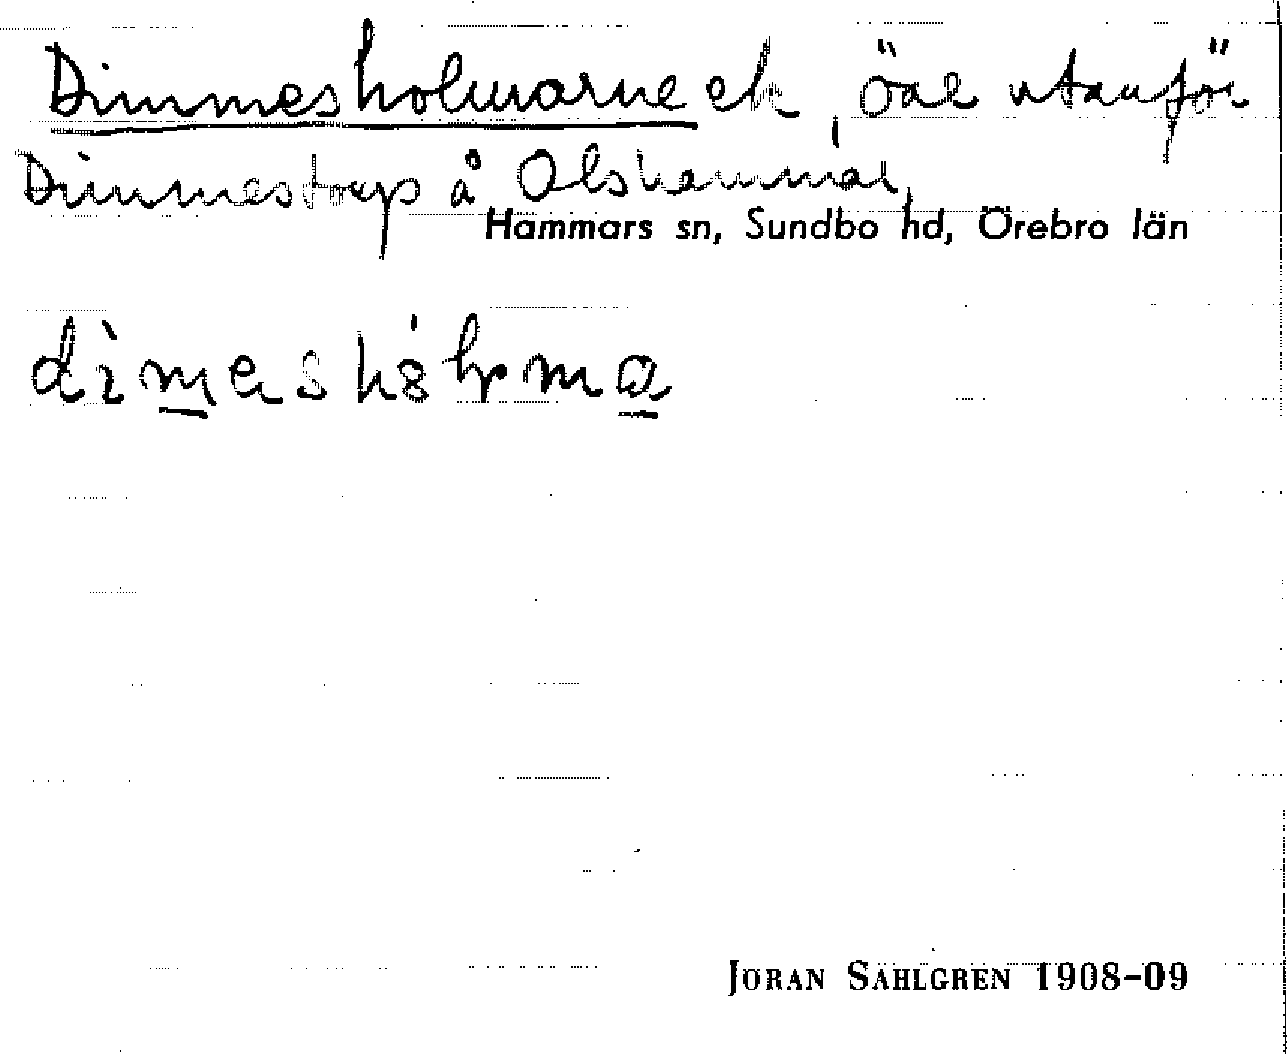 Dimmesholmarne ek, öar utanför
Dimmestorp å Olshammar,
Hammars sn, Sundbo hd, Örebro län
JÖRAN SAHLGREN 1908-09